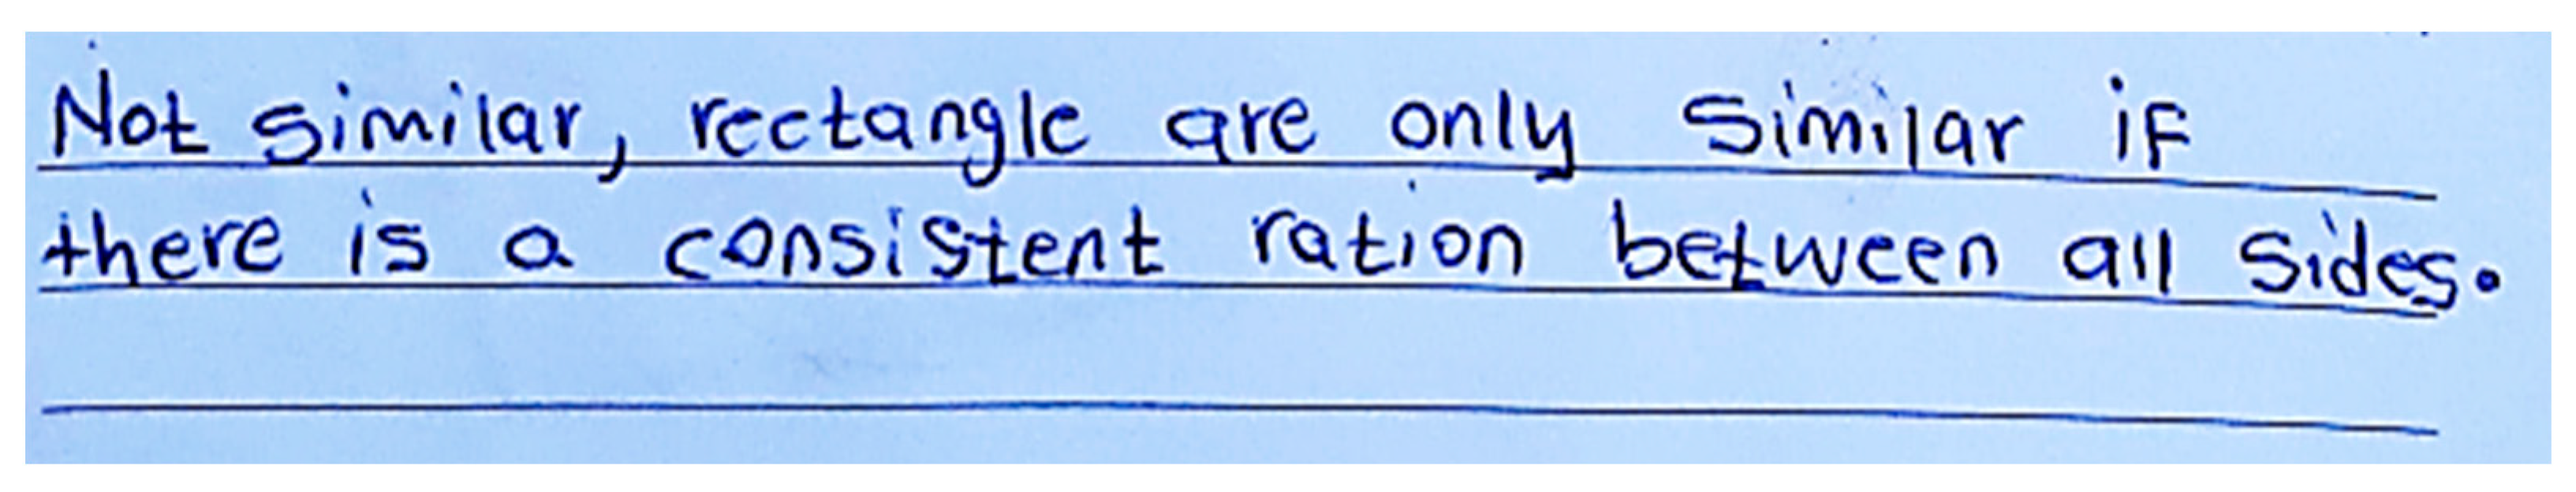 Not similar, rectangle are only similar if
there is a consistent ration between all sides.